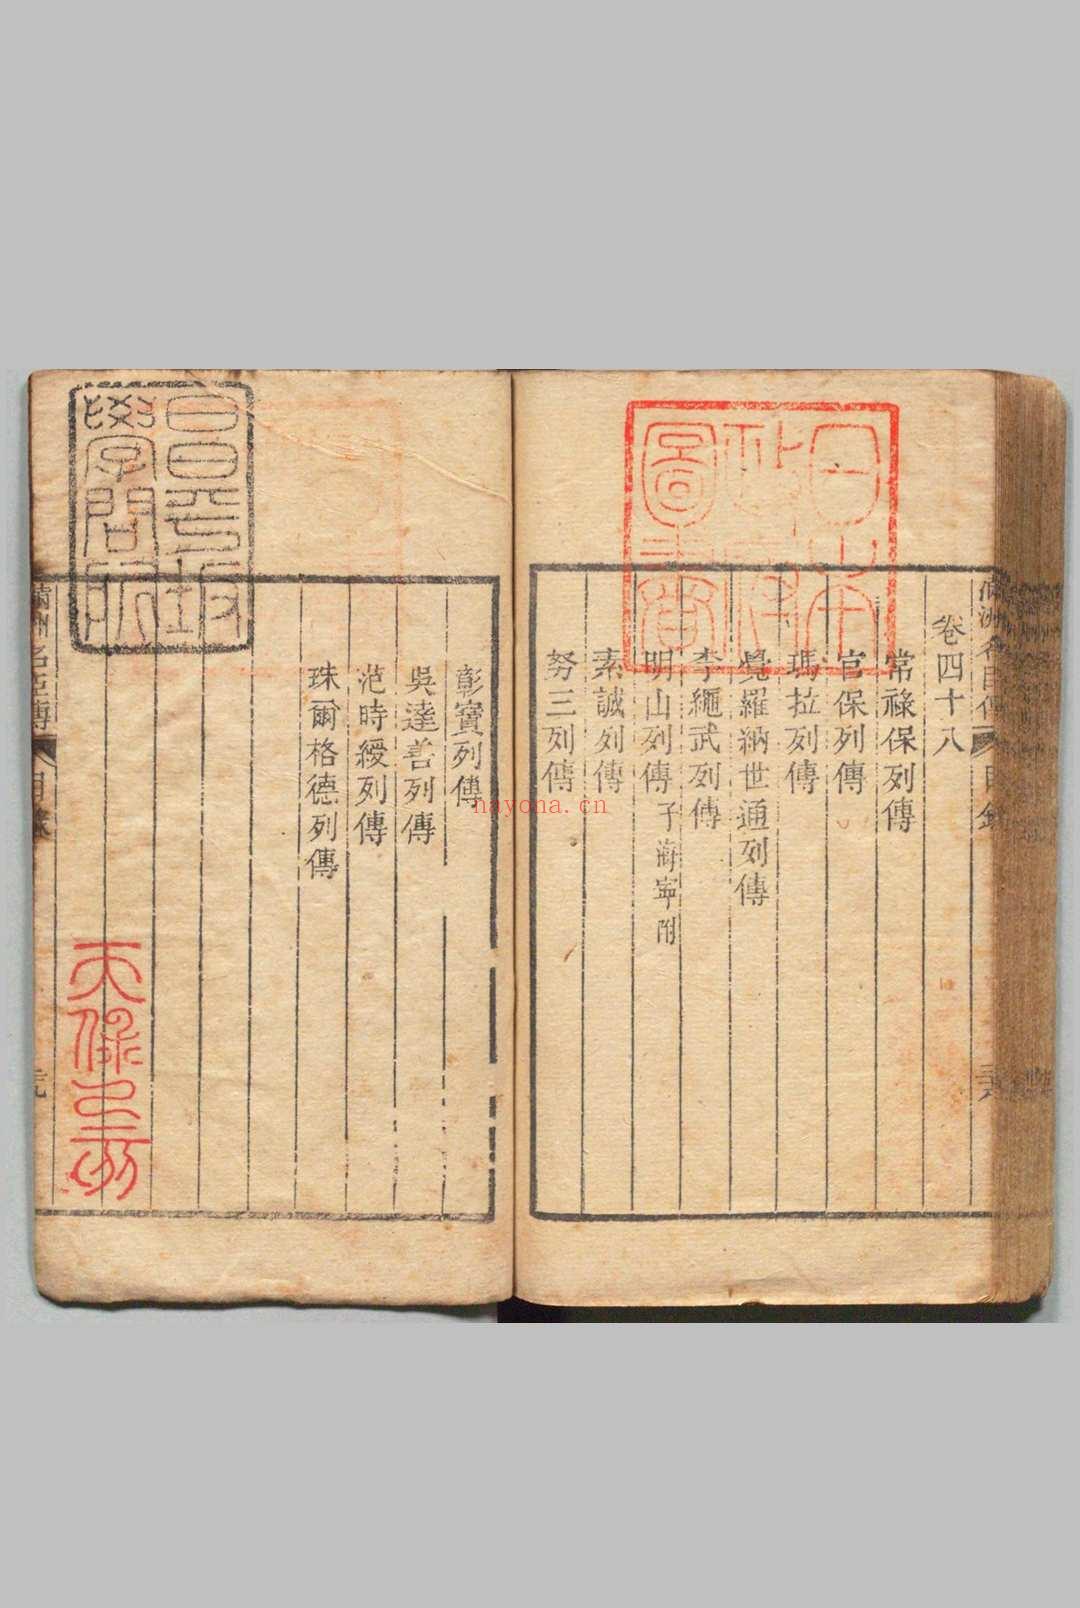 滿洲名臣傳 目錄
卷四十八
常祿保列傳
官保列傳
瑪拉列傳
覺羅納世通列傳
李繩武列傳
明山列傳 子海寧附
素誠列傳
努三列傳
日本政府圖書
彰寶列傳
吳達善列傳
范時綬列傳
珠爾格德列傳
滿洲名臣傳 目錄
昌平坂學問所
天保壬寅
nayona.cn